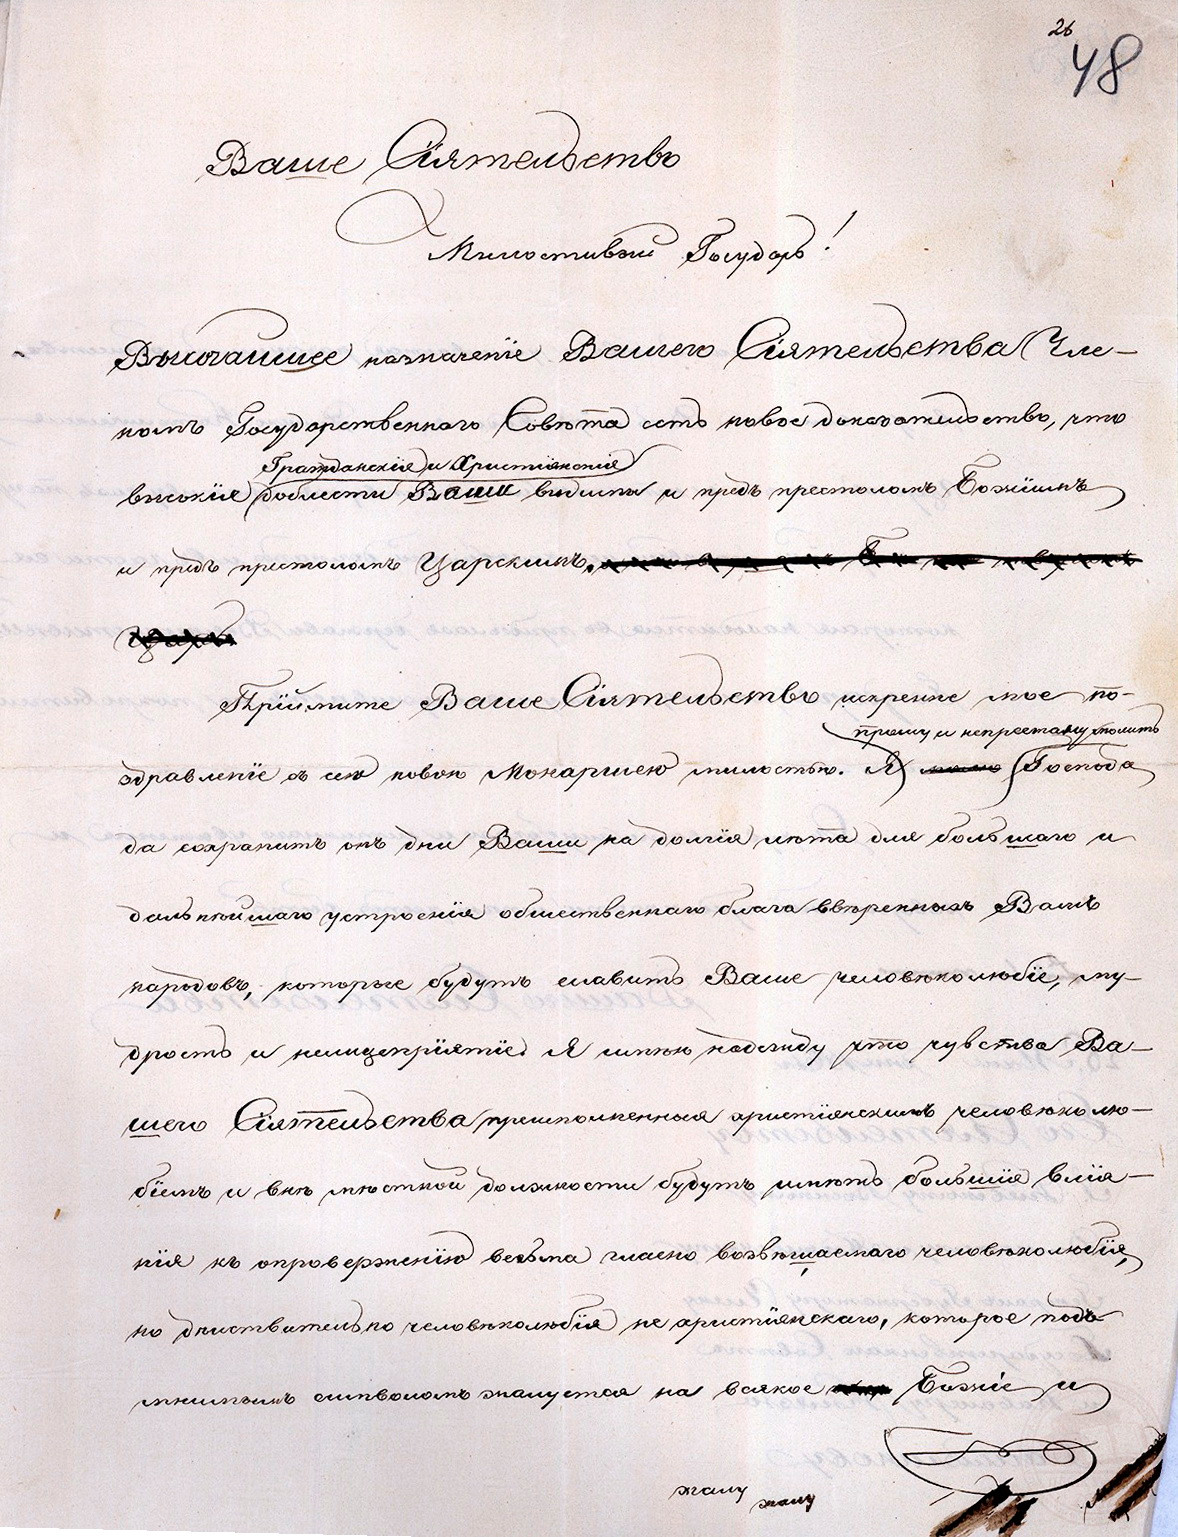 26
48
Ваше Сіятельство
Милостивый Государь!
Высочайшее назначеніе Вашего Сіятельства Чле-
номъ Государственнаго Совѣта есть новое доказательство, что
Гражданскія и Христіянскія
высокіе доблести Ваши видимы и предъ престоломъ Божіимъ
и предъ престоломъ Царскимъ.
Прїймите Ваше Сіятельство искренне мое по-
прошу и непрестану молить
здравленіе съ сею новою Монаршею милостью. Я Господа
да сохранитъ онъ дни Ваши на долгія лѣта для большаго и
дальнѣйшаго устроенія общественнаго блага ввѣренныхъ Вамъ
народовъ, которые будутъ славить Ваше человѣколюбіе, му-
дрость и нелицепріятіе. Я имѣю надежду что чувства Ва-
шего Сіятельства преисполненныя христіянскимъ человѣколю-
біемъ и внѣ мѣстной должности будутъ имѣть большія влія-
нія къ опроверженію весьма гласно возвѣщаемаго человѣколюбія,
но дѣйствительно человѣколюбія не христіянскаго, которое подъ
мнимымъ символомъ жалуется на всякое Божіе и
жалу жалу